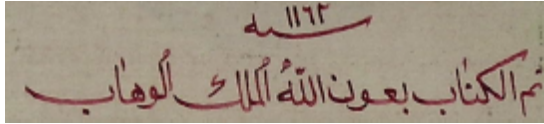 ١١٦٢ سنه
تم الكتاب بعون الله الملك الوهاب